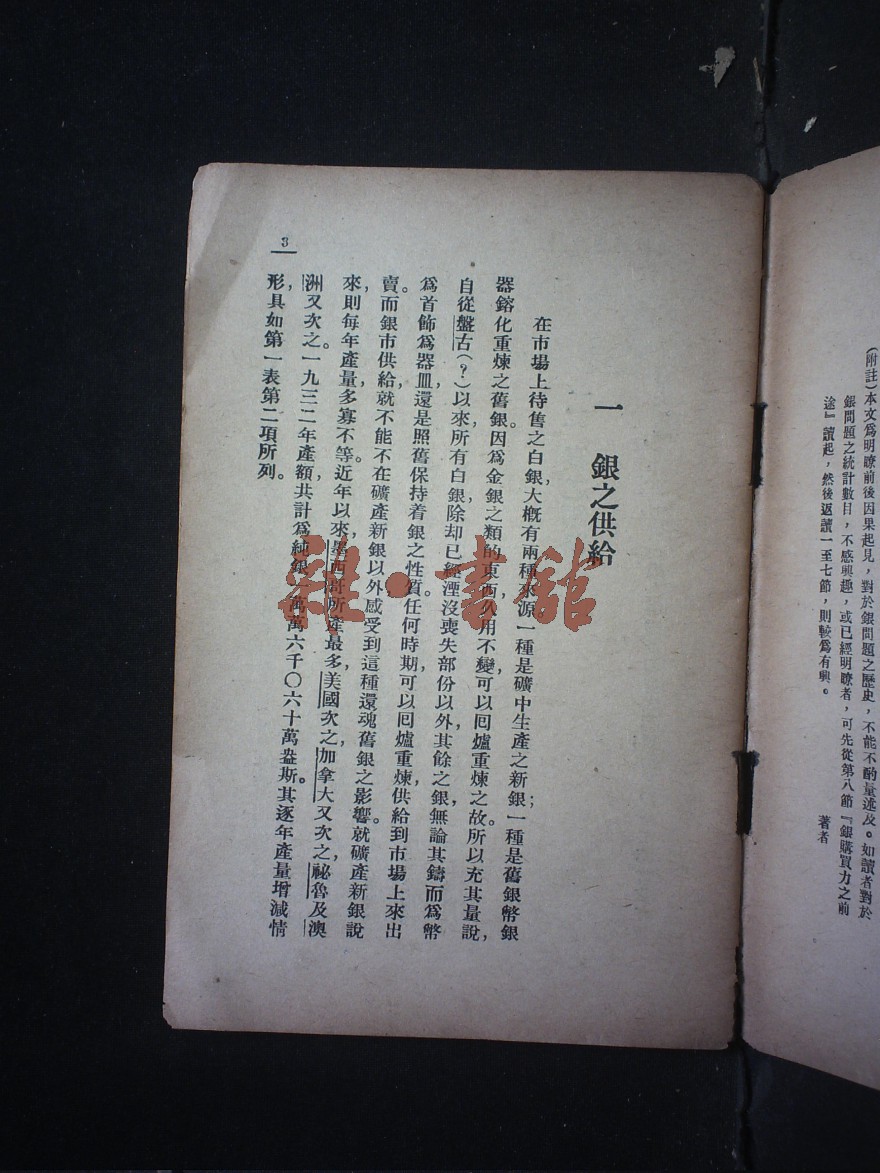 (附註)本文爲明瞭前後因果起見，對於銀問題之歷史，不能不酌量述及。如讀者對於
銀問題之統計數目，不感興趣，或已經明瞭者，可先從第八節『銀購買力之前
途』讀起，然後返讀一至七節，則較爲有興。
著者
一　銀之供給
在市場上待售之白銀，大槪有兩種來源，一種是礦中生產之新銀；一種是舊銀幣銀
器鎔化重煉之舊銀。因爲金銀之類的東西，久用不變，可以回爐重煉之故。所以充其量說，
自從盤古(？)以來，所有白銀，除却已經湮沒喪失部份以外，其餘之銀，無論其鑄而爲幣，
爲首飾，爲器皿，還是照舊保持着銀之性質。任何時期，可以回爐重煉，供給到市場上來出
賣。而銀市供給，就不能不在礦產新銀以外，感受到這種還魂舊銀之影響。就礦產新銀說
來，則每年產量，多寡不等。近年以來，墨西哥所產最多，美國次之，加拿大又次之，祕魯及澳
洲又次之。一九三二年產額，共計爲純銀一萬萬六千〇六十萬盎斯。其逐年產量增減情
形，具如第一表第二項所列。
3
雜·書館